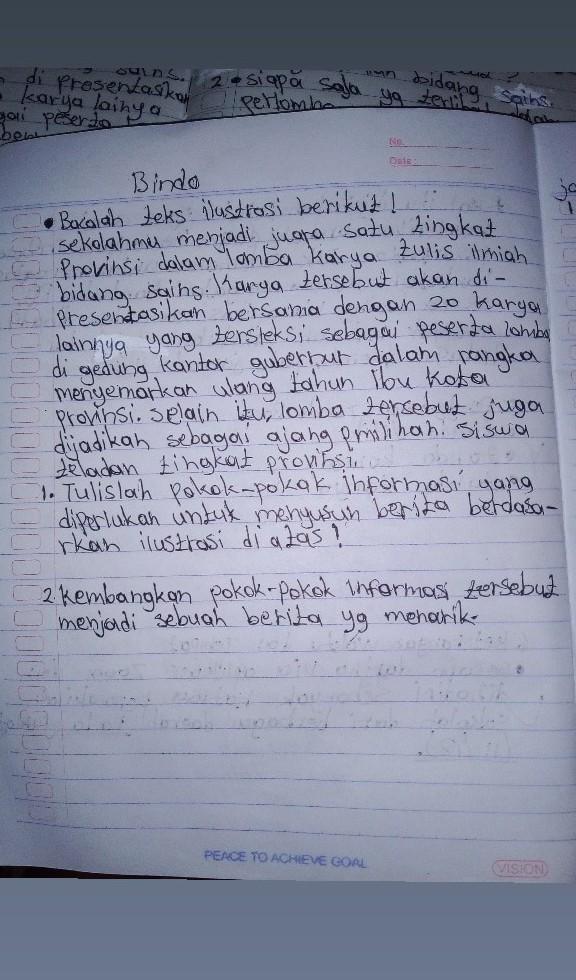 di presentasikan
karya lainya
gai peserta
2 • siapa saja yg terlibat
bidang sains.
No.
Date :
Bindo
• Bacalah teks ilustrasi berikut!
sekolahmu menjadi juara satu tingkat
Provinsi dalam lomba karya tulis ilmiah
bidang sains. Karya tersebut akan di-
Presentasikan bersama dengan 20 karya
lainnya yang tersleksi sebagai peserta lomba
di gedung kantor guberbur dalam rangka
menyemarkan ulang tahun ibu kota
provinsi. selain itu, lomba tersebut juga
dijadikah sebagai ajang pmilihan siswa
teladan tingkat provihsi.
1. Tulislah pokok-pokok informasi yang
diperlukan untuk menyusun berita berdasa-
rkan ilustrasi di atas!
2. kembangkan pokok-pokok informasi tersebut
menjadi sebuah berita yg menarik.
PEACE TO ACHIEVE GOAL
VISION